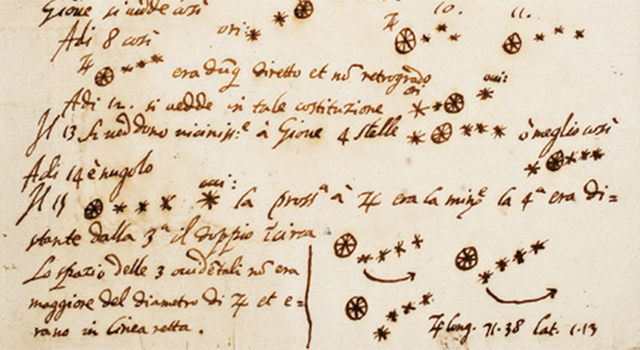 Gioue si uedde così
Adi 8 così ori: ♃ 10. 11.
♃ era dũq diretto et nõ retrogrado
Adi 12. si uedde in tale costituzione ori: occi:
Il 13 si ueddono uiciniss.e à Gioue 4 stelle ò meglio così
Adi 14 è nugolo
Il 15 occi: la pross.a à ♃ era la min.e la 4.a era di=
stante dalla 3.a il doppio ĩ circa
Lo spazio delle 3 occidẽtali nõ era
maggiore del diametro di ♃ et e=
rano in linea retta.
♃ long. 71.38 lat. 1.13